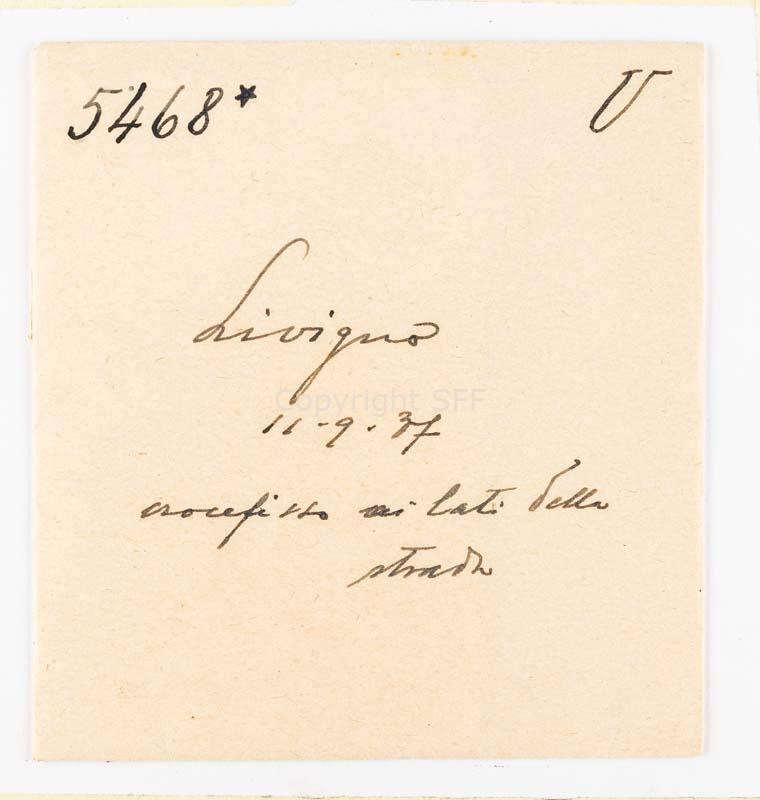 5468* U
Livigno
Copyright SFF
11-9-37
crocefisso ai lati della
strada